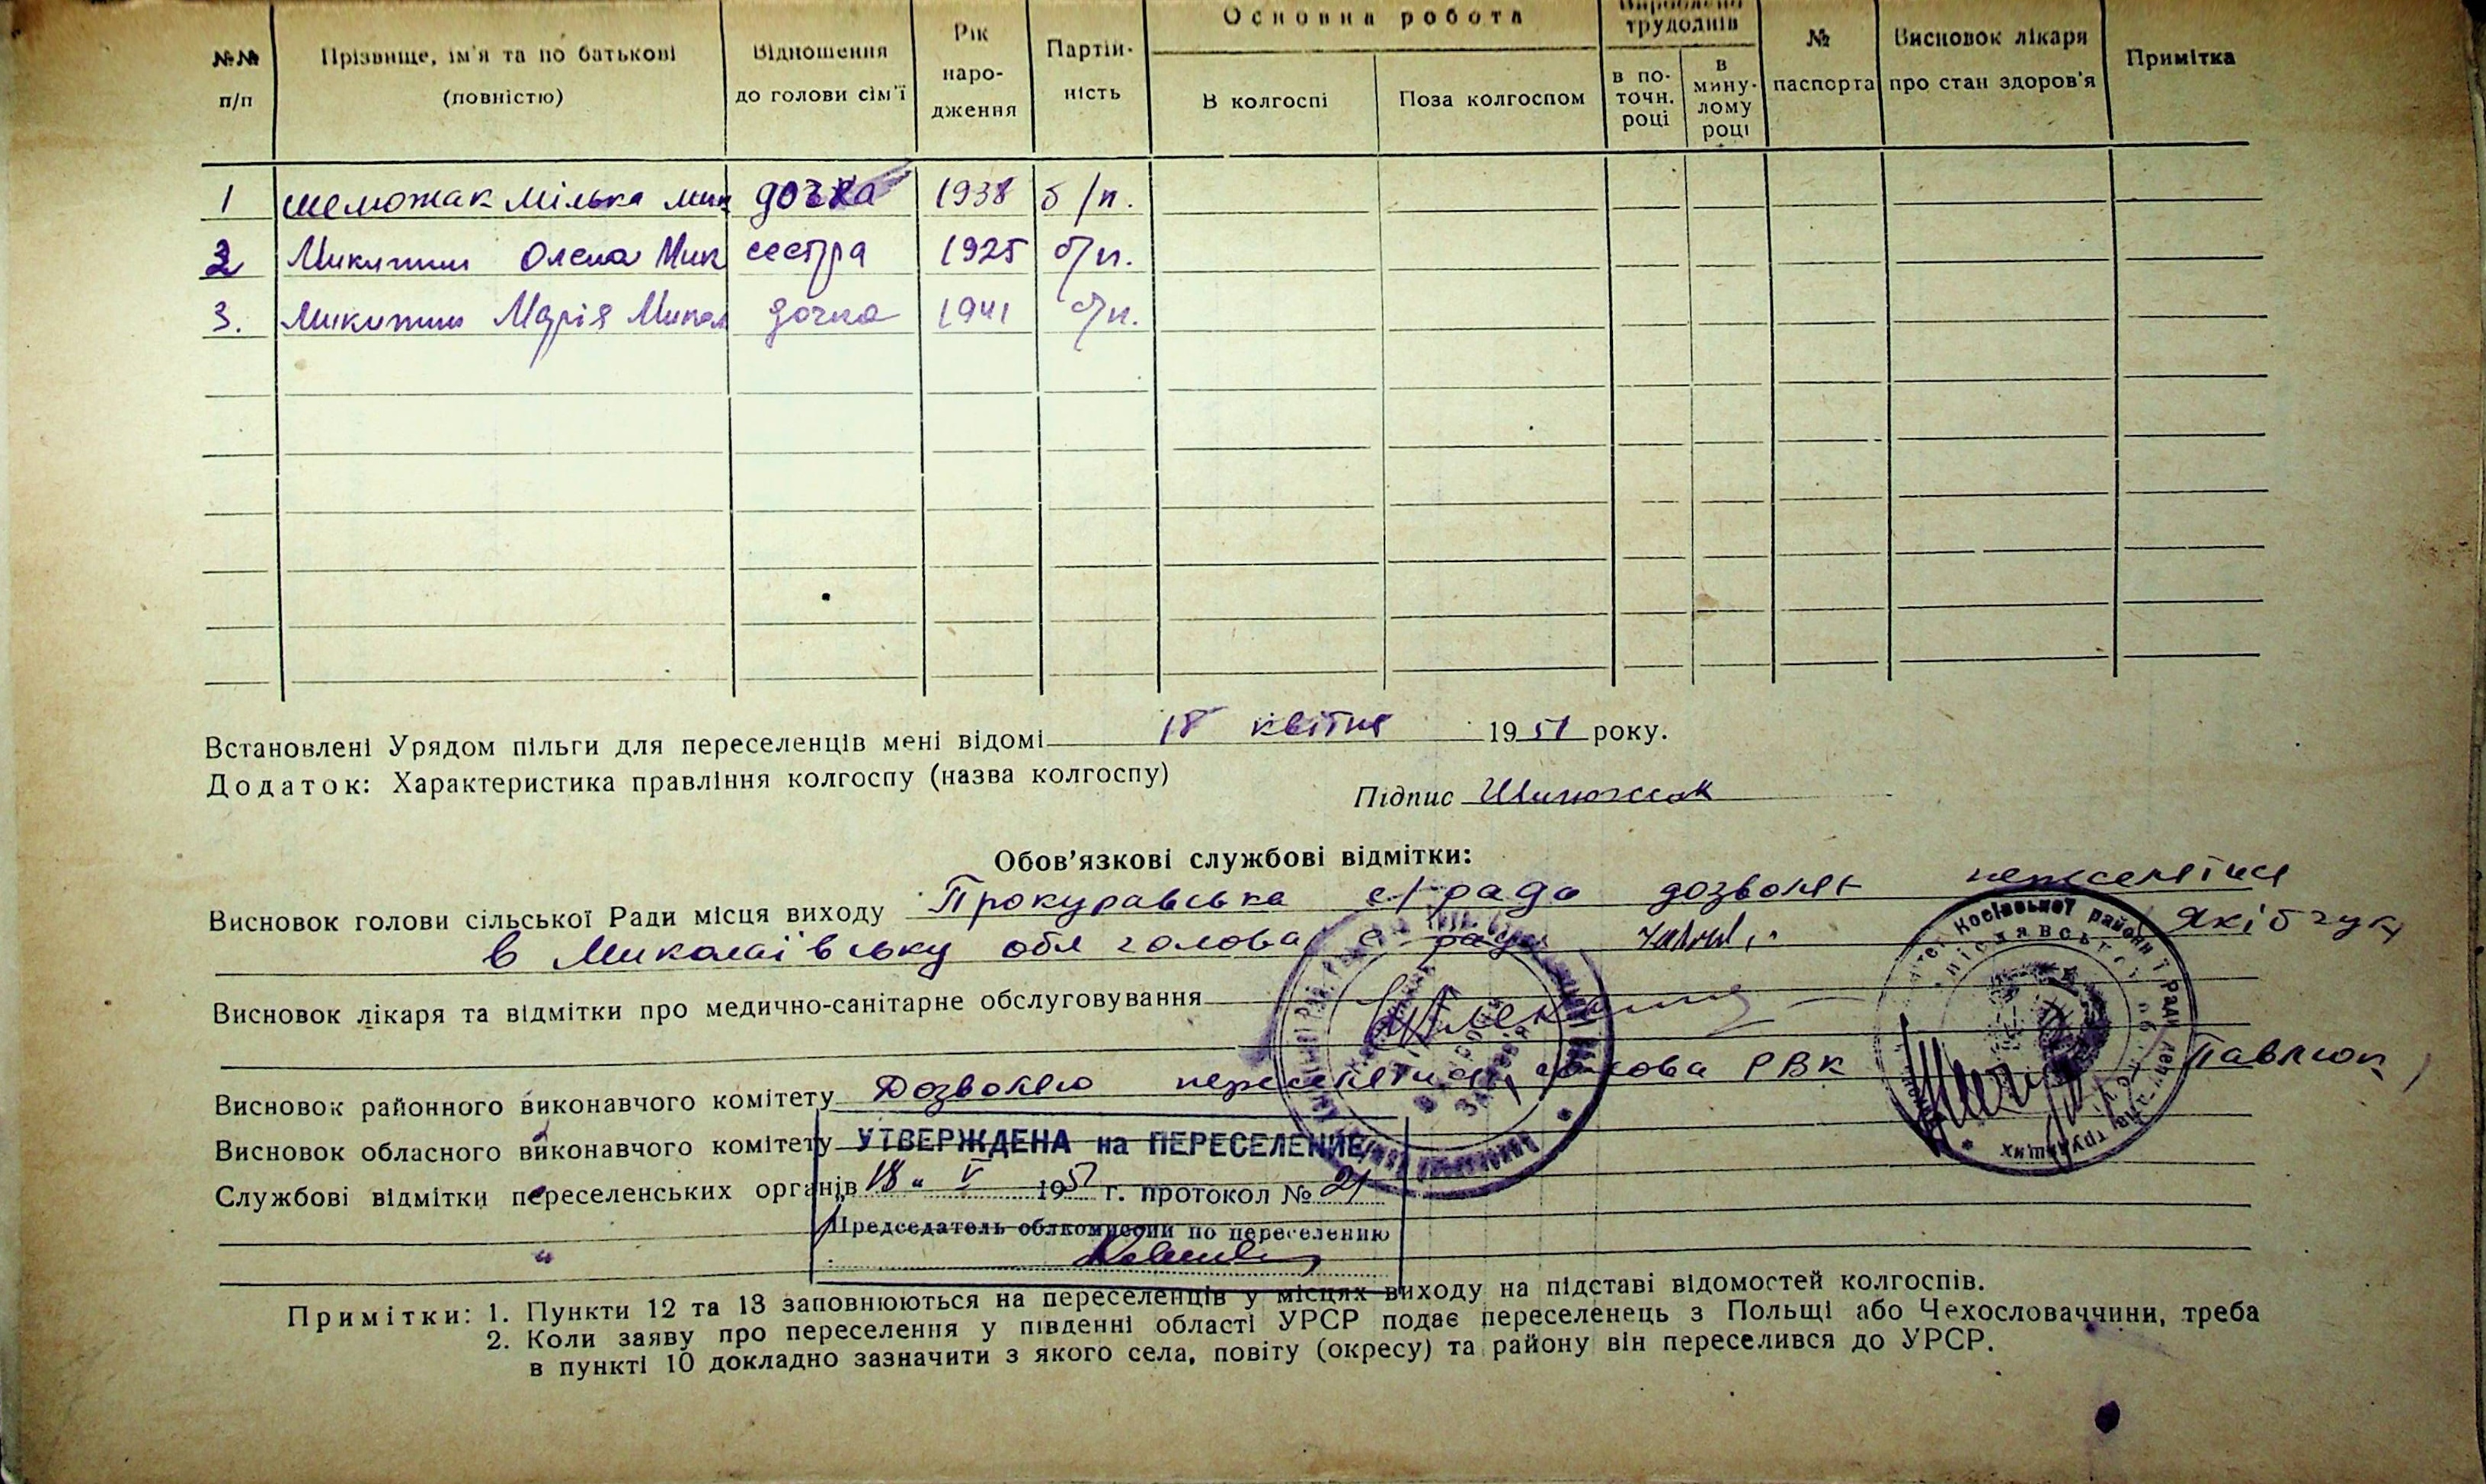 Основна робота
Вироблено трудоднів
№№ п/п
Прізвище, ім'я та по батькові (повністю)
Відношення до голови сім'ї
Рік наро-дження
Партій-ність
В колгоспі
Поза колгоспом
в по-точн. році
в мину-лому році
№ паспорта
Висновок лікаря про стан здоров'я
Примітка
1 шемюжак Мілька Мик дочка 1938 б/п.
2 Микитин Олена Мик сестра 1925 б/п.
3. Микитин Марія Микол дочка 1941 б/п.
Встановлені Урядом пільги для переселенців мені відомі 18 квітня 1951 року.
Додаток: Характеристика правління колгоспу (назва колгоспу)
Підпис
Обов'язкові службові відмітки:
Висновок голови сільської Ради місця виходу Прокуравська с/рада дозволяє переселітися
в Миколаївську обл голова с-ради Якібчук
Висновок лікаря та відмітки про медично-санітарне обслуговування
Висновок районного виконавчого комітету Дозволено переселитися голова РВК Павлюк
Висновок обласного виконавчого комітету УТВЕРЖДЕНА на ПЕРЕСЕЛЕНИЕ
Службові відмітки переселенських органів „18“ V 1951 г. протокол № 21
Председатель облкомиссии по переселению
Примітки: 1. Пункти 12 та 13 заповнюються на переселенців у місцях виходу на підставі відомостей колгоспів.
2. Коли заяву про переселення у південні області УРСР подає переселенець з Польщі або Чехословаччини, треба
в пункті 10 докладно зазначити з якого села, повіту (окресу) та району він переселився до УРСР.